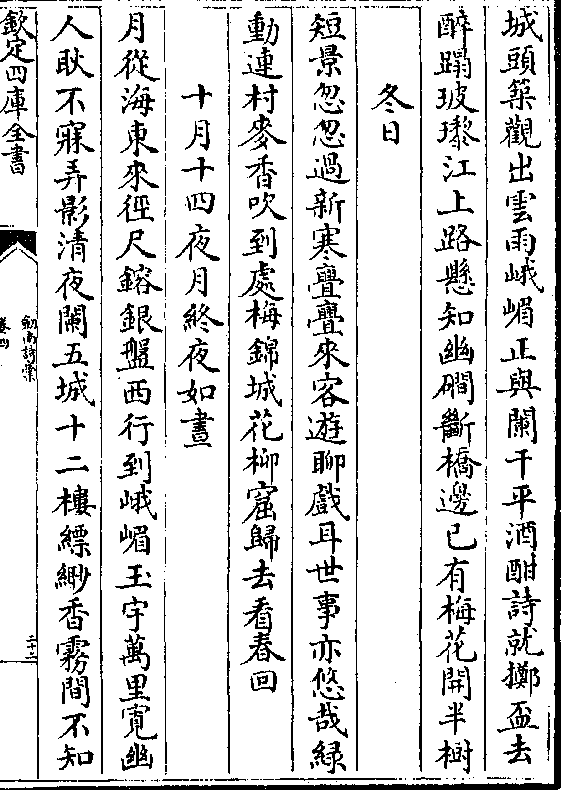 城頭築觀出雲雨峨嵋正與闌干平酒酣詩就擲盃去
醉蹋玻瓈江上路懸知幽磵斷橋邊已有梅花開半樹
冬日
短景忽忽過新寒亹亹來客遊聊戲耳世事亦悠哉緑
動連村麥香吹到處梅錦城花柳窟歸去看春回
十月十四夜月終夜如晝
月從海東來徑尺鎔銀盤西行到峨嵋玉宇萬里寛幽
人耿不寐弄影清夜闌五城十二樓縹緲香霧間不知
欽定四庫全書
劒南詩槀
卷四
二十二